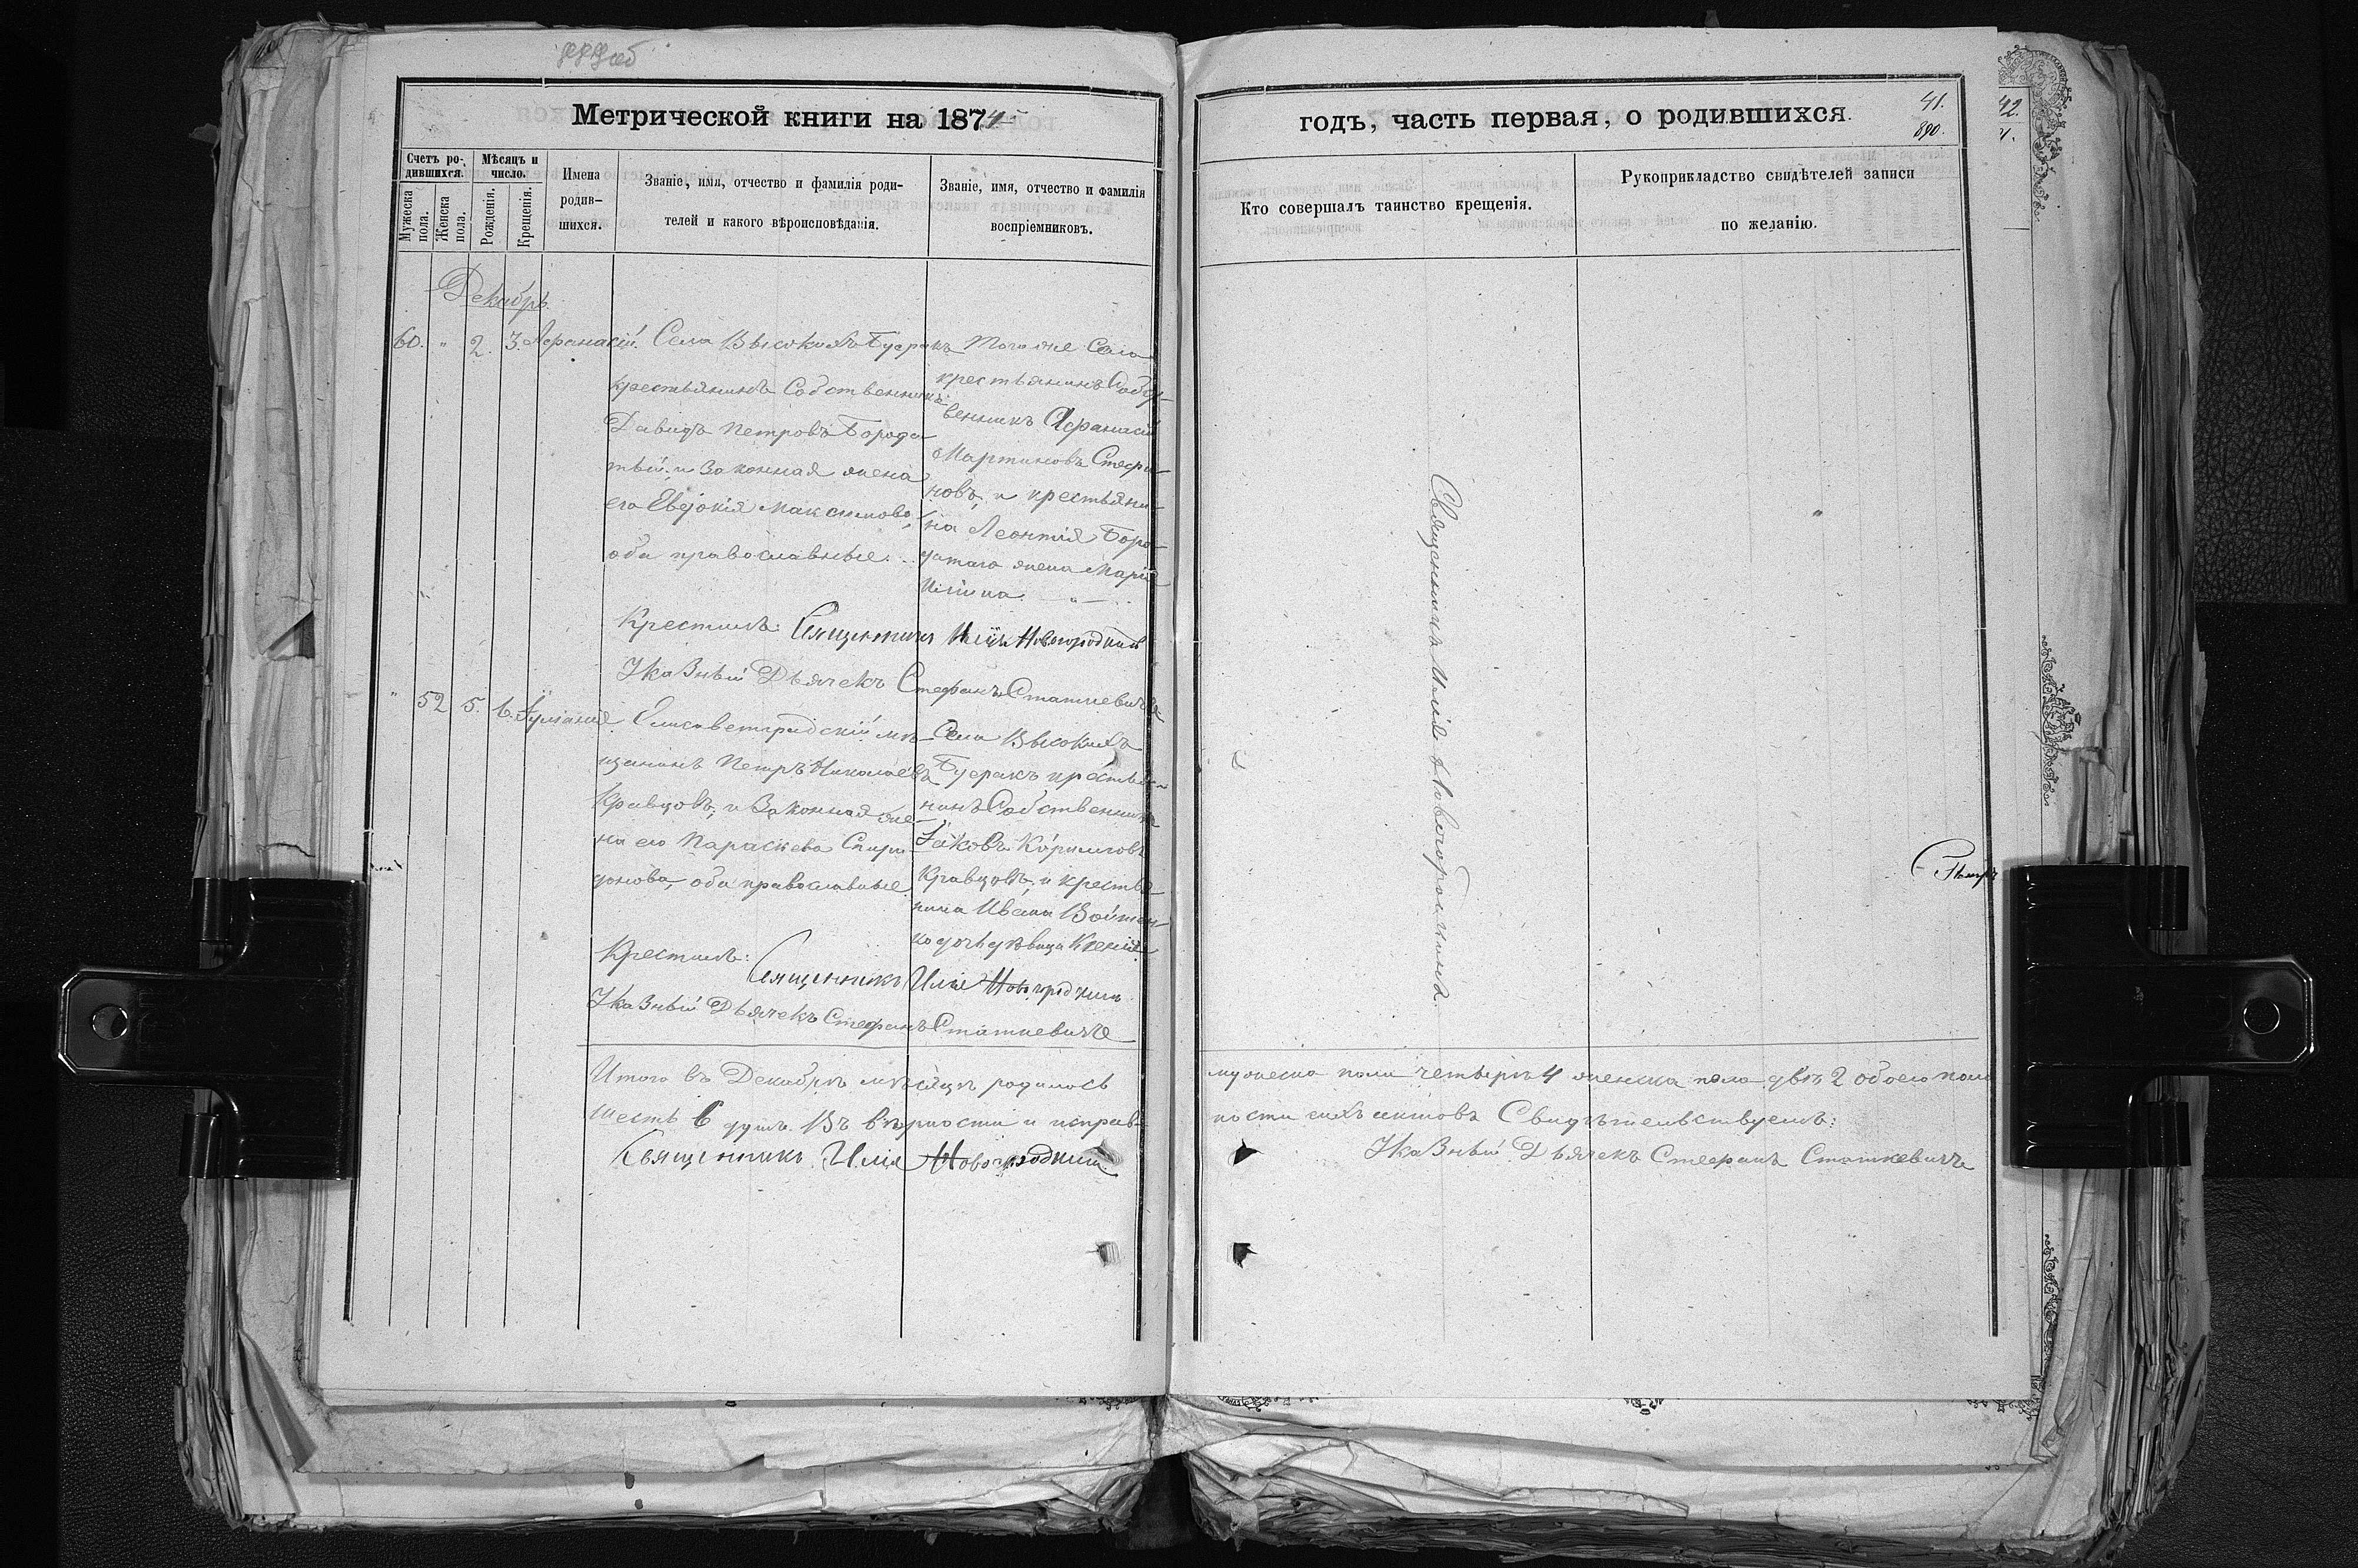 Метрической книги на 1874
годъ, часть первая, о родившихся.
41.
890.
42.
Счетъ ро-
дившихся.
Мѣсяцъ и
число.
Мужеска
пола.
Женска
пола.
Рожденія.
Крещенія.
Имена
родив-
шихся.
Званіе, имя, отчество и фамилія роди-
телей и какого вѣроисповѣданія.
Званіе, имя, отчество и фамилія
воспріемниковъ.
Кто совершалъ таинство крещенія.
Рукоприкладство свидѣтелей записи
по желанію.
Декабрь.
60. " 2. 3. Афанасій.
Села Высокихъ Буеракъ
крестьянинъ Собственникъ
Давидъ Петровъ Борода
тый и законная жена
его Евдокія Максимова,
оба православные.
Того же Села
крестьянинъ Собст-
венникъ Афанасій
Мартиновъ Стефа-
новъ, и крестьяни
на Леонтія Боро
датаго жена Марія
Крестилъ: Священникъ Илія Новогродскій
Указный Дьячекъ Стефанъ Статкевичъ
" 52 5. 6. Іуліанія
Елисаветградскій мѣ-
щанинъ Петръ Николаевъ
Кравцовъ, и законная же-
на его Параскева Спири
донова, оба православные.
Села Высокихъ
Буеракъ крестья-
нинъ Собственникъ
Іаковъ
Кравцовъ, и крестья-
нина Ивана Войтен-
ко дочь дѣвица Ксенія
Крестилъ:
Священникъ Илія
Указный Дьячекъ Стефанъ Статкевичъ
Итого въ Декабрѣ мѣсяцѣ родилось
мужеска пола четыре 4 женска пола двѣ 2 обоего пола
шесть 6 душъ. Въ вѣрности и исправ-
ности сихъ актовъ Свидѣтельствуемъ:
Священникъ Илія
Указный Дьячекъ Стефанъ Статкевичъ
Священникъ Илія